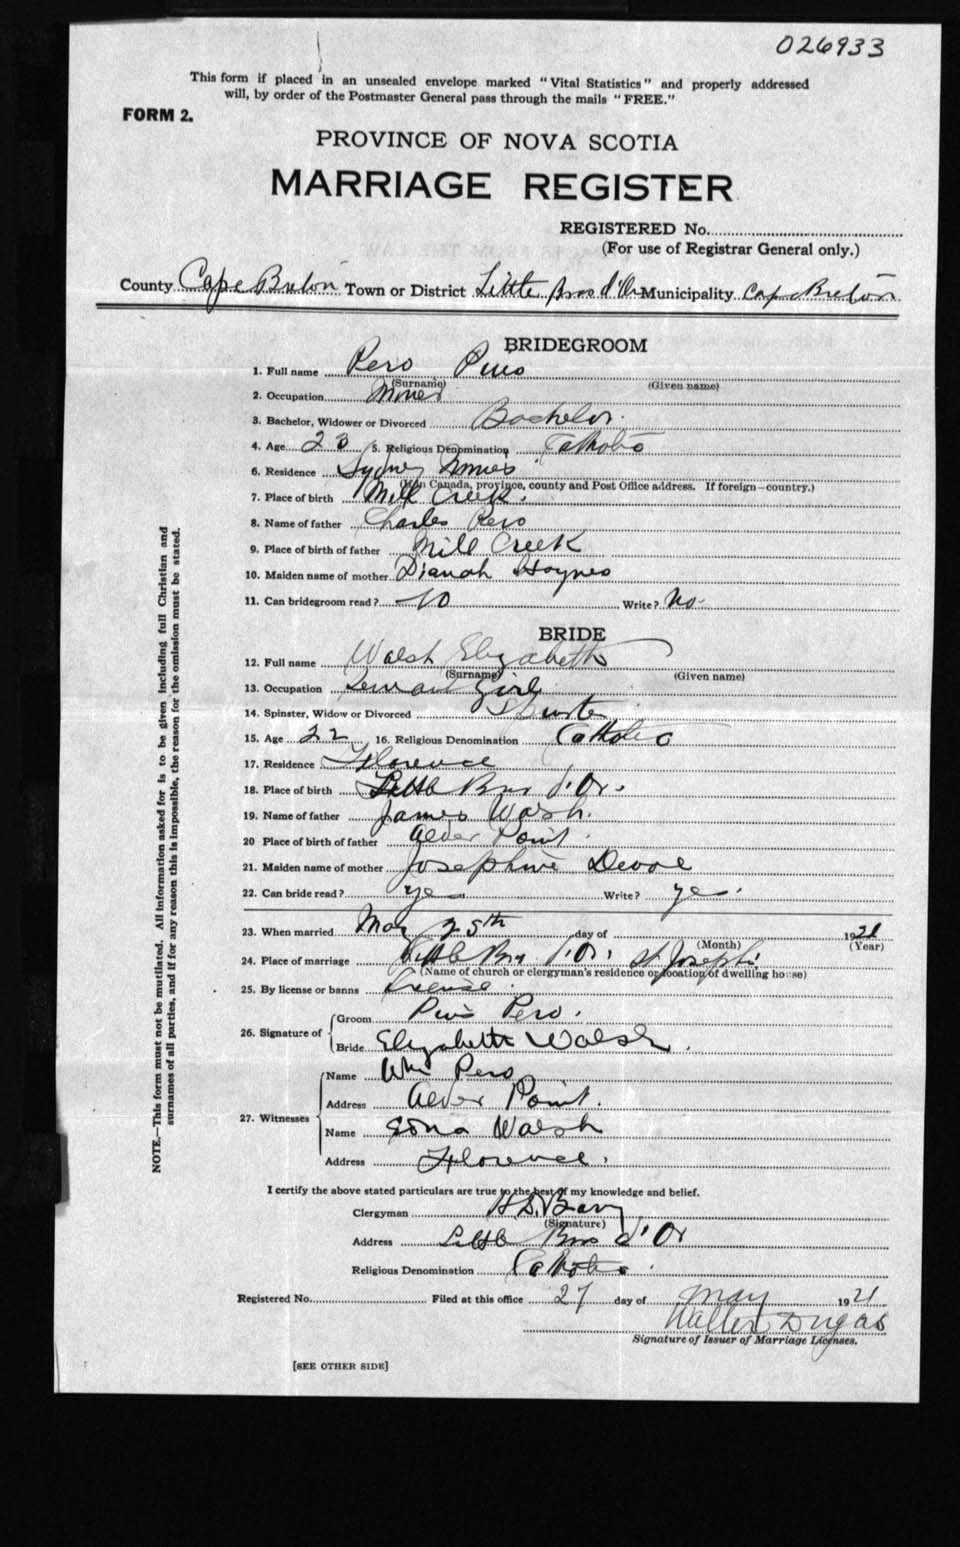 026933
This form if placed in an unsealed envelope marked "Vital Statistics" and properly addressed
will, by order of the Postmaster General pass through the mails "FREE."
FORM 2.
PROVINCE OF NOVA SCOTIA
MARRIAGE REGISTER
REGISTERED No.
(For use of Registrar General only.)
County Cape Breton Town or District Little Bras d'Or Municipality Cape Breton
BRIDEGROOM
1. Full name Pero Pius
(Surname) (Given name)
2. Occupation Miner
3. Bachelor, Widower or Divorced Bachelor
4. Age 23 5. Religious Denomination Catholic
6. Residence Sydney Mines
(If in Canada, province, county and Post Office address. If foreign—country.)
7. Place of birth Mill Creek.
8. Name of father Charles Pero
9. Place of birth of father Mill Creek
10. Maiden name of mother Dianah Haynes
11. Can bridegroom read? No Write? No.
BRIDE
12. Full name Walsh Elizabeth
(Surname) (Given name)
13. Occupation Servant Girl
14. Spinster, Widow or Divorced
15. Age 22 16. Religious Denomination Catholic
17. Residence Florence
18. Place of birth Little Bras d'Or.
19. Name of father James Walsh.
20 Place of birth of father Alder Point.
21. Maiden name of mother Josephine Devoe
22. Can bride read? yes Write? yes.
23. When married May 25th day of 1921
(Month) (Year)
24. Place of marriage Little Bras d'Or, St Joseph's.
(Name of church or clergyman's residence or location of dwelling house)
25. By license or banns License.
26. Signature of
Groom Pius Pero.
Bride Elizabeth Walsh.
27. Witnesses
Name Wm Pero
Address Alder Point.
Name Edna Walsh
Address Florence.
I certify the above stated particulars are true to the best of my knowledge and belief.
Clergyman
(Signature)
Address Little Bras d'Or
Religious Denomination Catholic.
Registered No. Filed at this office 27 day of May 1921
Walter Dugas
Signature of Issuer of Marriage Licenses.
[SEE OTHER SIDE]
NOTE.—This form must not be mutilated. All information asked for is to be given including full Christian and
surnames of all parties, and if for any reason this is impossible, the reason for the omission must be stated.